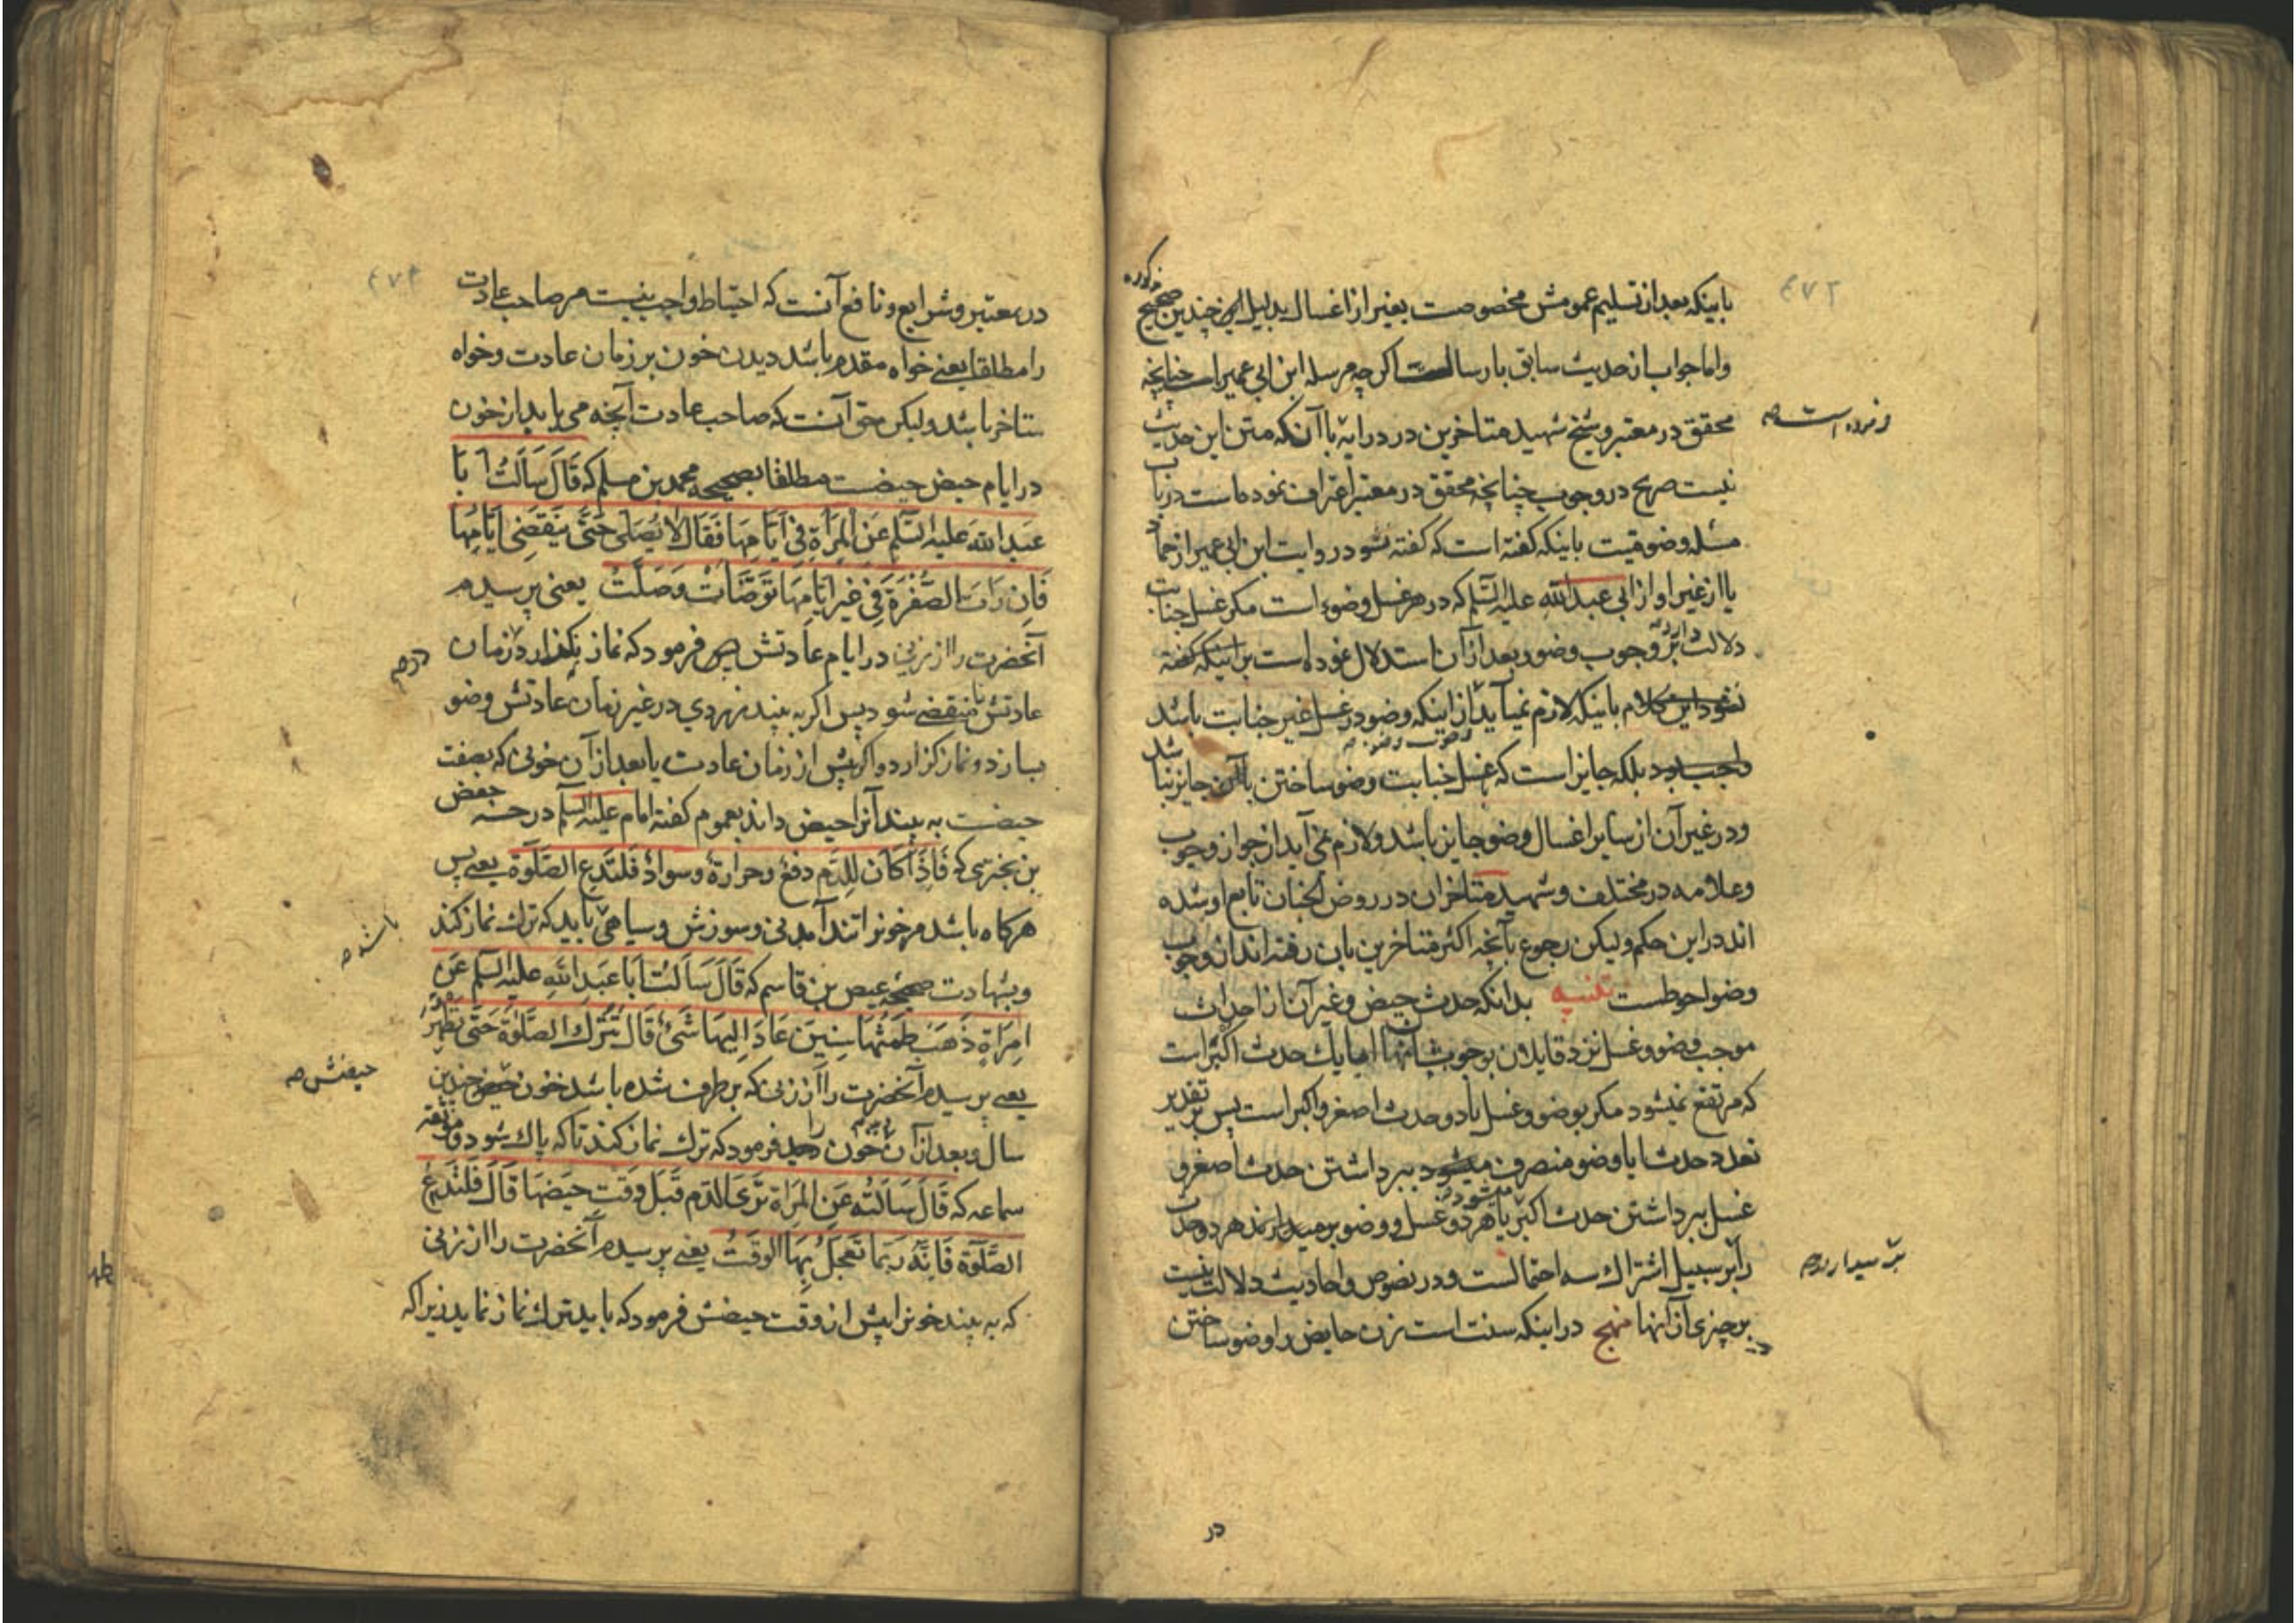 ٤٧٢
باینکه بعد از تسلیم عمومش مخصوصت بغیر از اغسال بدلیل این چندین صحیح مذکوره
واما جواب از حدیث سابق بارسالست اکرچه مرسله ابن ابی عمیر است چنانچه
محقق در معتبر و شیخ شهید متاخرین در درایه با آنکه متن این حدیث
نیست صریح در وجوب چنانچه محقق در معتبر اعتراف نموده است در باب
مسله وضو میت باینکه کفته است که کفته شود در روایت ابن ابی عمیر از حماد
یا از غیر او از ابی عبدالله علیه السلم که در هر غسل وضوء است مکر غسل جنابت
دلالت دارد بر وجوب وضو و بعد از آن استدلال نموده است بر اینکه کفته
نشود این کلام باینکه لازم نمیآید از اینکه وضو در غسل غیر جنابت باشد
واجب بود بلکه جایز است که غسل جنابت وضو ساختن با آن جایز نباشد
و در غیر آن از سایر اغسال وضو جایز باشد ولازم نمی آید از جواز وجوب
وعلامه در مختلف وشهید متاخران در روض الجنان تابع او شده
اند در این حکم ولیکن رجوع بآنچه اکثر متاخرین بان رفته اند از وجوب
وضو احوطست تنبیه بدانکه حدث حیض وغیر آن از احداث
موجب وضو وغسل نزد قایلان بوجوب آنها ایا یك حدث اکبر است
که مرتفع نمیشود مکر بوضو وغسل یا دو حدث اصغر واکبر است پس بر تقدیر
تعدد حدث ایا وضو منصرف میشود ببرداشتن حدث اصغر و
غسل ببرداشتن حدث اکبر یا هر دو غسل و وضو برمیدارند هر دو حدث
را بر سبیل اشتراك سه احتمالست ودر نصوص واحادیث دلالت نیست
بر چیزی از آنها منهج در اینکه سنت است زن حایض را وضو ساختن
در
٤٧٣
در معتبر وشرایع ونافع آنست که احتیاط واجب نیست مر صاحب عادت
را مطلقا یعنی خواه مقدم باشد دیدن خون بر زمان عادت وخواه
متاخر باشد ولیکن حق آنست که صاحب عادت آنچه می یابد از خون
در ایام حیض حیضست مطلقا بصحیحه محمد بن مسلم که قَالَ سَاَلتُ اَبَا
عَبدِ اللهِ علیه السّلم عَنِ المَراَةِ فِی اَیَّامِهَا فَقَالَ لاَ یُصَلّی حَتَّی یَنقَضِی اَیَّامُهَا
فَاِن رَاَت الصُّفرَةَ فِی غَیرِ اَیَّامِهَا تَوَضَّاَتْ وَصَلَّتْ یعنی پرسیدم
آنحضرت را از زنی در ایام عادتش پس فرمود که نماز نکذارد زمان
عادتش تا منقضی شود پس اکر به بیند زردی در غیر زمان عادتش وضو
بسازد ونماز کزارد واکر پیش از زمان عادت یا بعد از آن خونی که بصفت
حیضست به بیند آنرا حیض داند بعموم کفته امام علیه السلم در حسنه حفص
بن بختری که فَاِذَا کَانَ لِلدَّم دفعٌ وحرارةٌ وسوادٌ فَلتَدَعِ الصَّلوة یعنی پس
هرکاه باشد مر خونرا تند آمدنی وسوزش وسیاهی باید که ترك نماز کند
وبشهادت صحیحه عیص بن قاسم که قَالَ سَاَلتُ اَبَا عَبدِ اللهِ علیه السلم عَنِ
امرَاَةٍ ذَهَبَ طَمثُهَا سِنِینَ عَادَ اِلیهَا شَئٌ قَالَ تَترُك الصَّلوةَ حَتَّی تَطهُرَ
یعنی پرسیدم آنحضرت را از زنی که برطرف شده باشد خون حیض چندین
سال وبعد از آن خون دید فرمود که ترك نماز کند تا که پاك شود وموثقه
سماعه که قَالَ سَاَلتُه عَنِ المَراَة تَرَی الدَّم قَبلَ وَقتِ حَیضِهَا قَالَ فَلتَدَعْ
الصَّلوة فَاِنّه رُبَّمَا تَعَجَّلَ بِهَا الوَقتُ یعنی پرسیدم آنحضرت را از زنی
که به بیند خونرا پیش از وقت حیضش فرمود که باید ترك نماز نماید زیرا که
باشد صح
حیضش صح